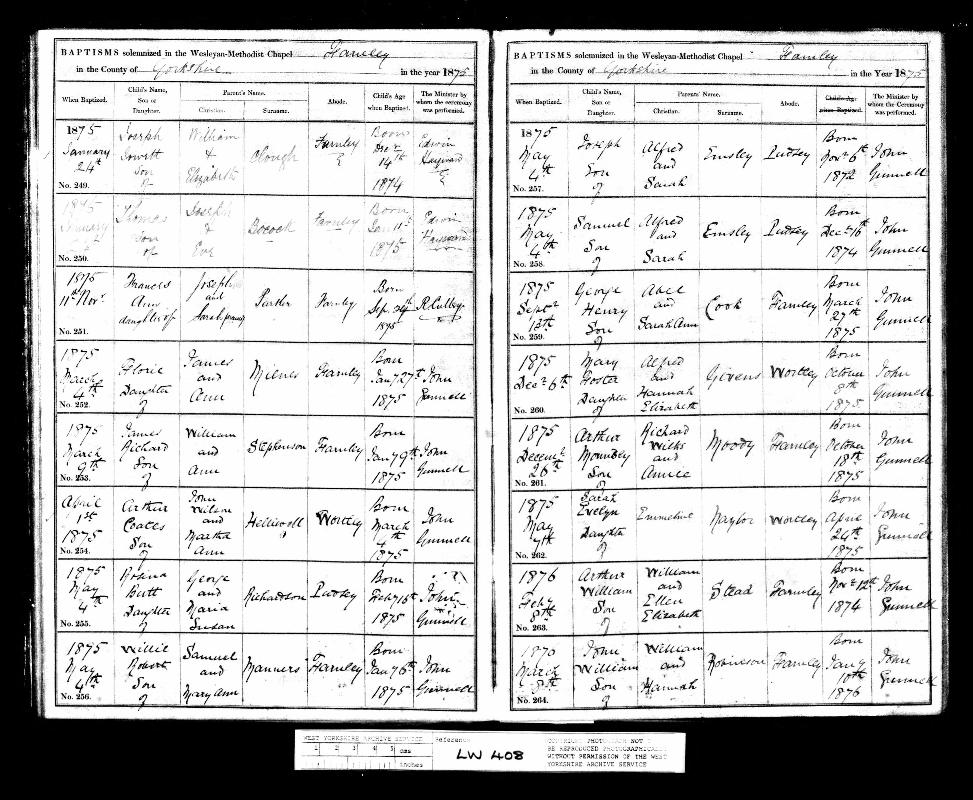 BAPTISMS solemnized in the Wesleyan-Methodist Chapel Farnley
in the County of Yorkshire in the year 1875
When Baptized. Child's Name, Son or Daughter. Parent's Name. Christian. Surname. Abode. Child's Age when Baptized. The Minister by whom the ceremony was performed.
1875 January 24th No. 249. Joseph Son of William & Elizabeth Clough Farnley Born Decr 14th 1874 Edwin Hayward
No. 250. Thomas Son of Joseph & Eve Bocock Farnley Born Jany 11th 1875 Edwin Hayward
1875 11th Novr No. 251. Frances Ann daughter of Joseph and Sarah Parker Farnley Born Sep. 1875 R. Culley
1875 March 4th No. 252. Florie Daughter of James and Ann Milnes Farnley Born Jany 27th 1875 John Gunnell
1875 March 9th No. 253. James Richard Son of William and Ann Stephenson Farnley Born Jany 9th 1875 John Gunnell
April 1st 1875 No. 254. Arthur Coates Son of John Wilson and Martha Ann Helliwell Wortley Born March 4th 1875 John Gunnell
1875 May 4th No. 255. Daughter of George and Maria Susan Richardson Pudsey Born Feby 15th 1875 John Gunnell
1875 May 4th No. 256. Willie Robert Son of Samuel and Mary Ann Manners Farnley Born Jany 6th 1875 John Gunnell
BAPTISMS solemnized in the Wesleyan-Methodist Chapel Farnley
in the County of Yorkshire in the Year 1875
When Baptized. Child's Name, Son or Daughter. Parents' Name. Christian. Surname. Abode. Child's Age when Baptized. The Minister by whom the Ceremony was performed.
1875 May 4th No. 257. Joseph Son of Alfred and Sarah Emsley Pudsey Born Novr 6th 1872 John Gunnell
1875 May 4th No. 258. Samuel Son of Alfred and Sarah Emsley Pudsey Born Decr 16th 1874 John Gunnell
1875 Septr 13th No. 259. George Henry Son of Abel and Sarah Ann Cook Farnley Born March 27th 1875 John Gunnell
1875 Decr 6th No. 260. Mary Foster Daughter of Alfred and Hannah Elizabeth Givens Wortley Born October 8th 1875 John Gunnell
1875 Decemr 26th No. 261. Arthur Son of Richard Wilks and Annie Moody Farnley Born October 18th 1875 John Gunnell
1875 May 7th No. 262. Sarah Evelyn Daughter of Emmeline Naylor Wortley Born April 24th 1875 John Gunnell
1876 Feby 8th No. 263. Arthur William Son of William and Ellen Elizabeth Stead Farnley Born Novr 12th 1874 John Gunnell
March 8th No. 264. John William Son of William and Hannah Robinson Farnley Born Jany 10th 1876 John Gunnell
WEST YORKSHIRE ARCHIVE SERVICE
1 2 3 4 5 cms
1 2 inches
Reference
LW 408
COPYRIGHT PHOTOGRAPH NOT TO
BE REPRODUCED PHOTOGRAPHICALLY
WITHOUT PERMISSION OF THE WEST
YORKSHIRE ARCHIVE SERVICE